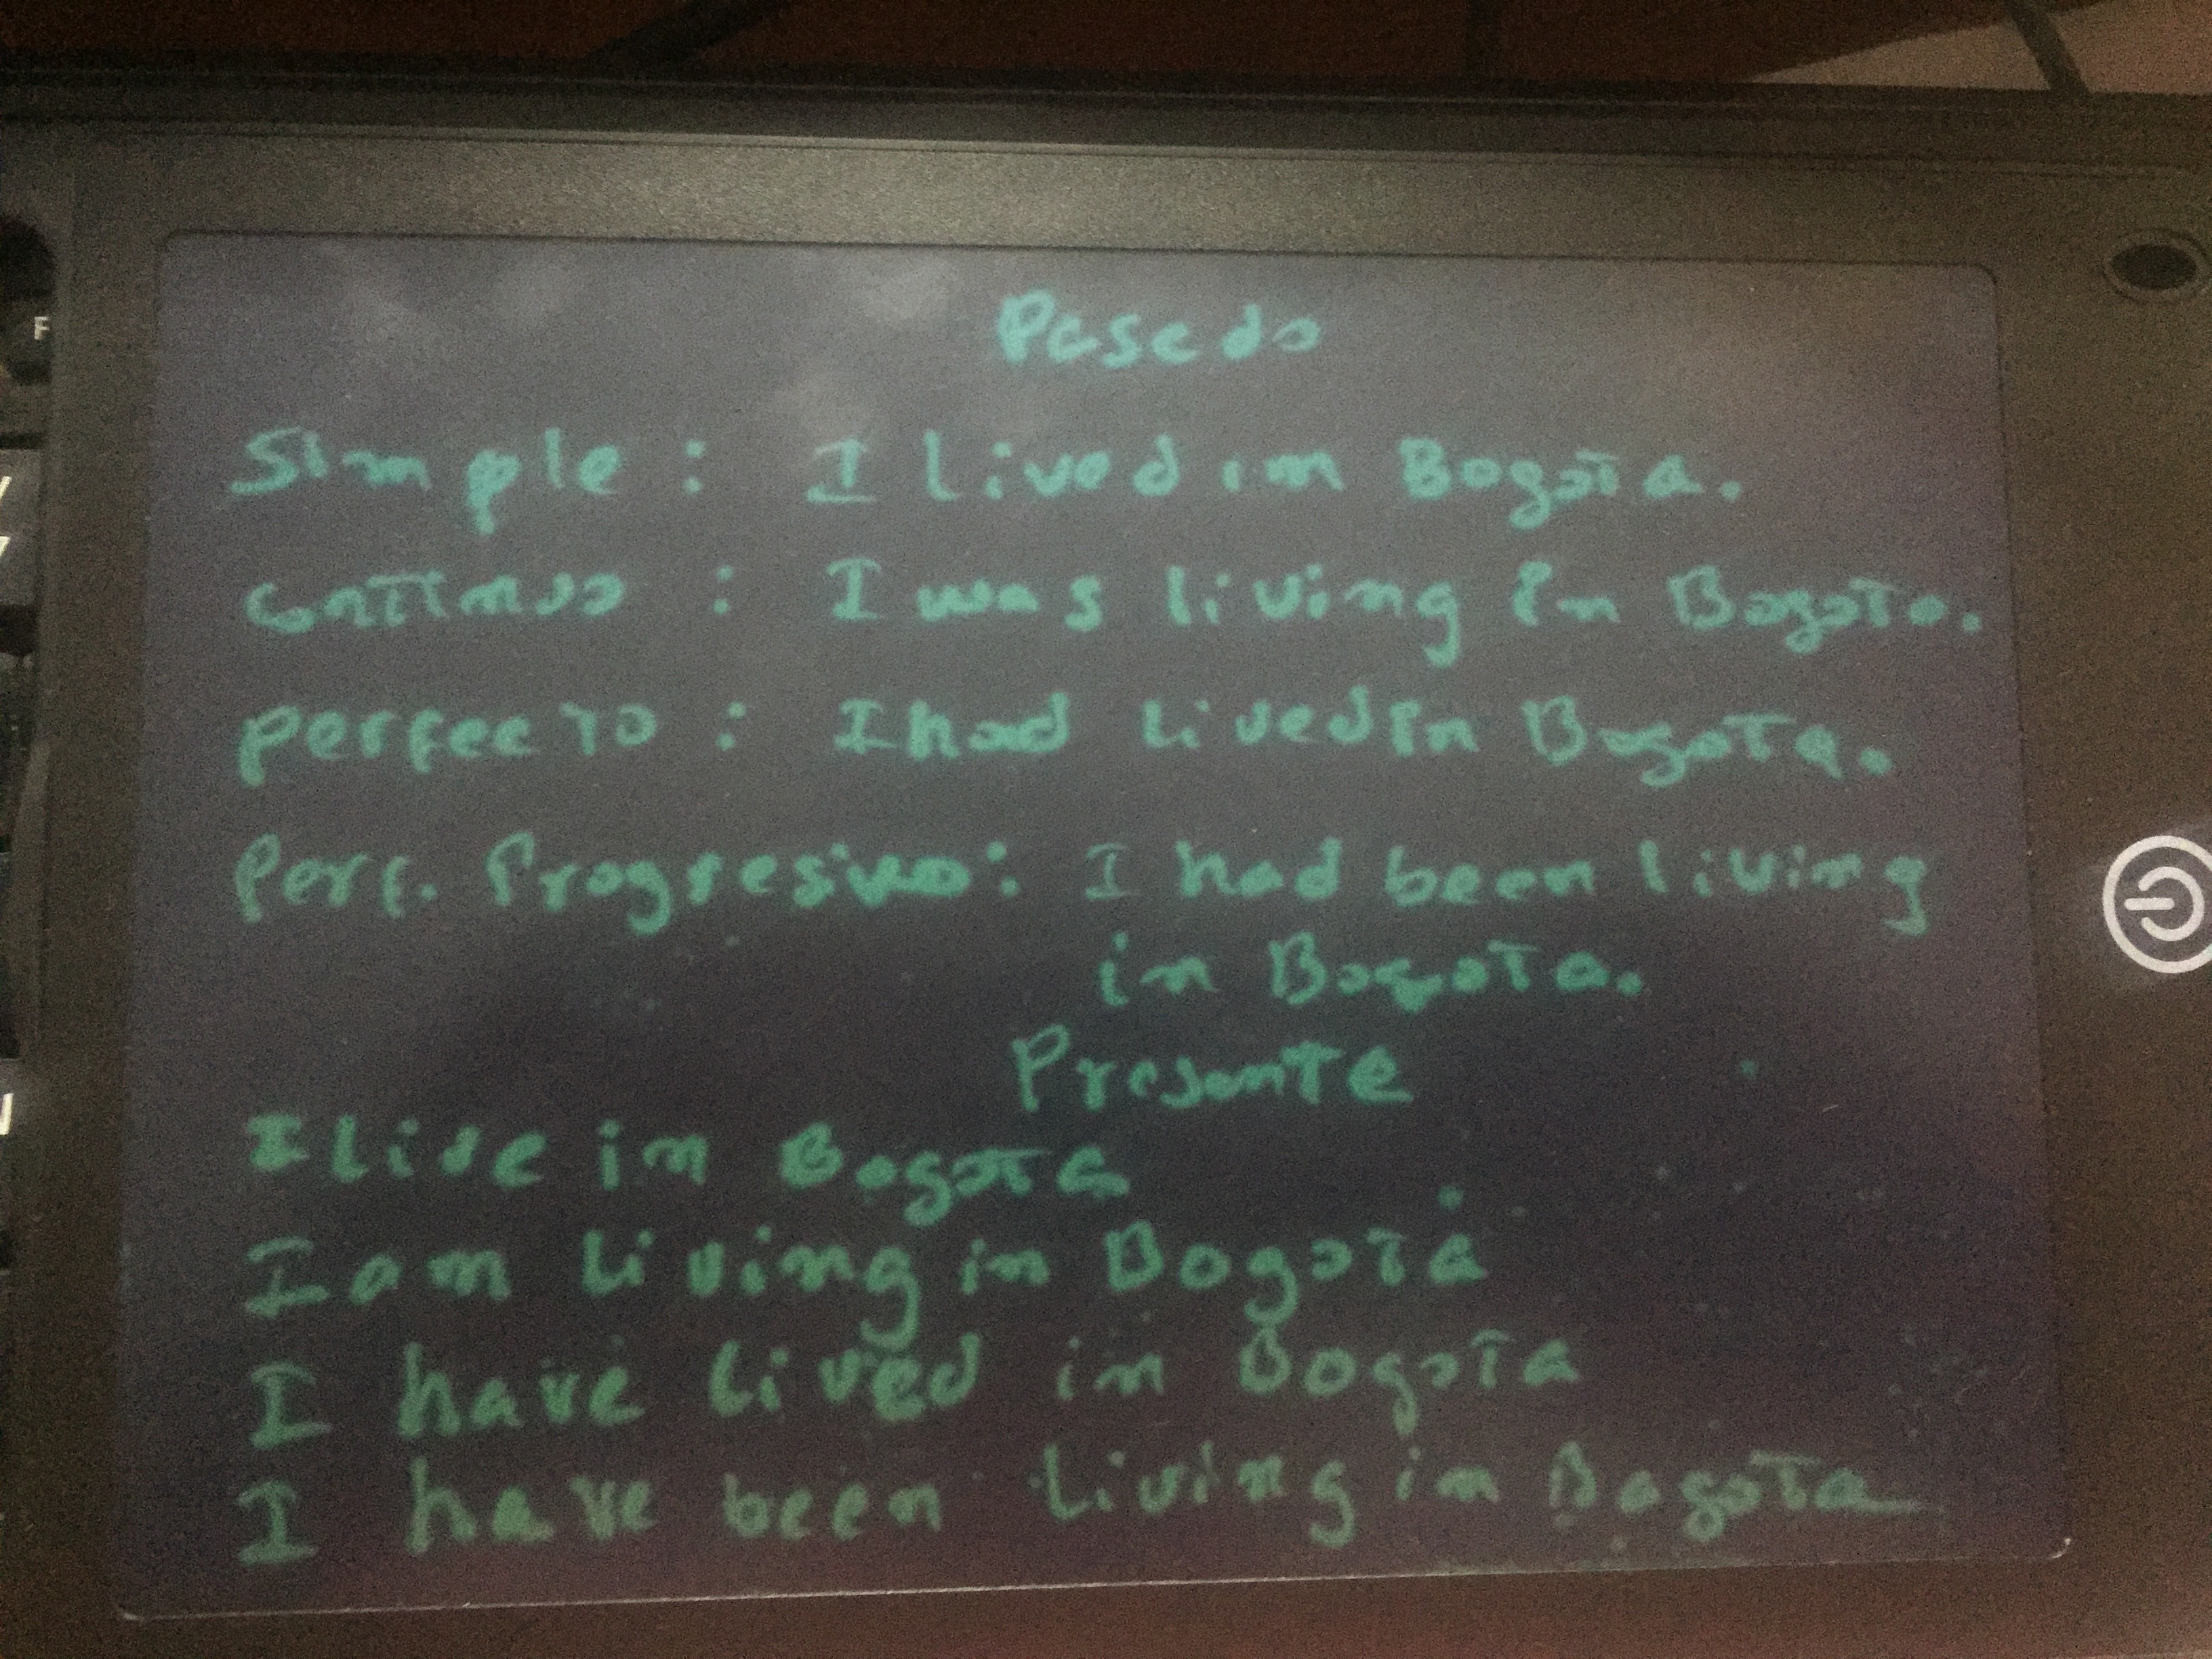 Pasado
Simple: I lived in Bogota.
Continuo: I was living in Bogota.
Perfecto: I had lived in Bogota.
Perf. Progresivo: I had been living
in Bogota.
Presente
I live in Bogota
I am living in Bogota
I have lived in Bogota
I have been living in Bogota